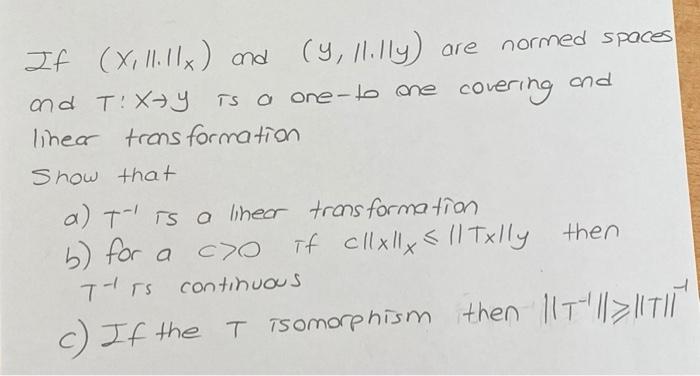 If (X, ||.||x) and (y, ||.||y) are normed spaces
and T: X→y is a one-to one covering and
linear transformation
Show that
a) T⁻¹ is a linear transformation
b) for a c>0 if c||x||x ≤ ||Tx||y then
T⁻¹ is continuous
c) If the T isomorphism then ||T⁻¹||≥||T||⁻¹